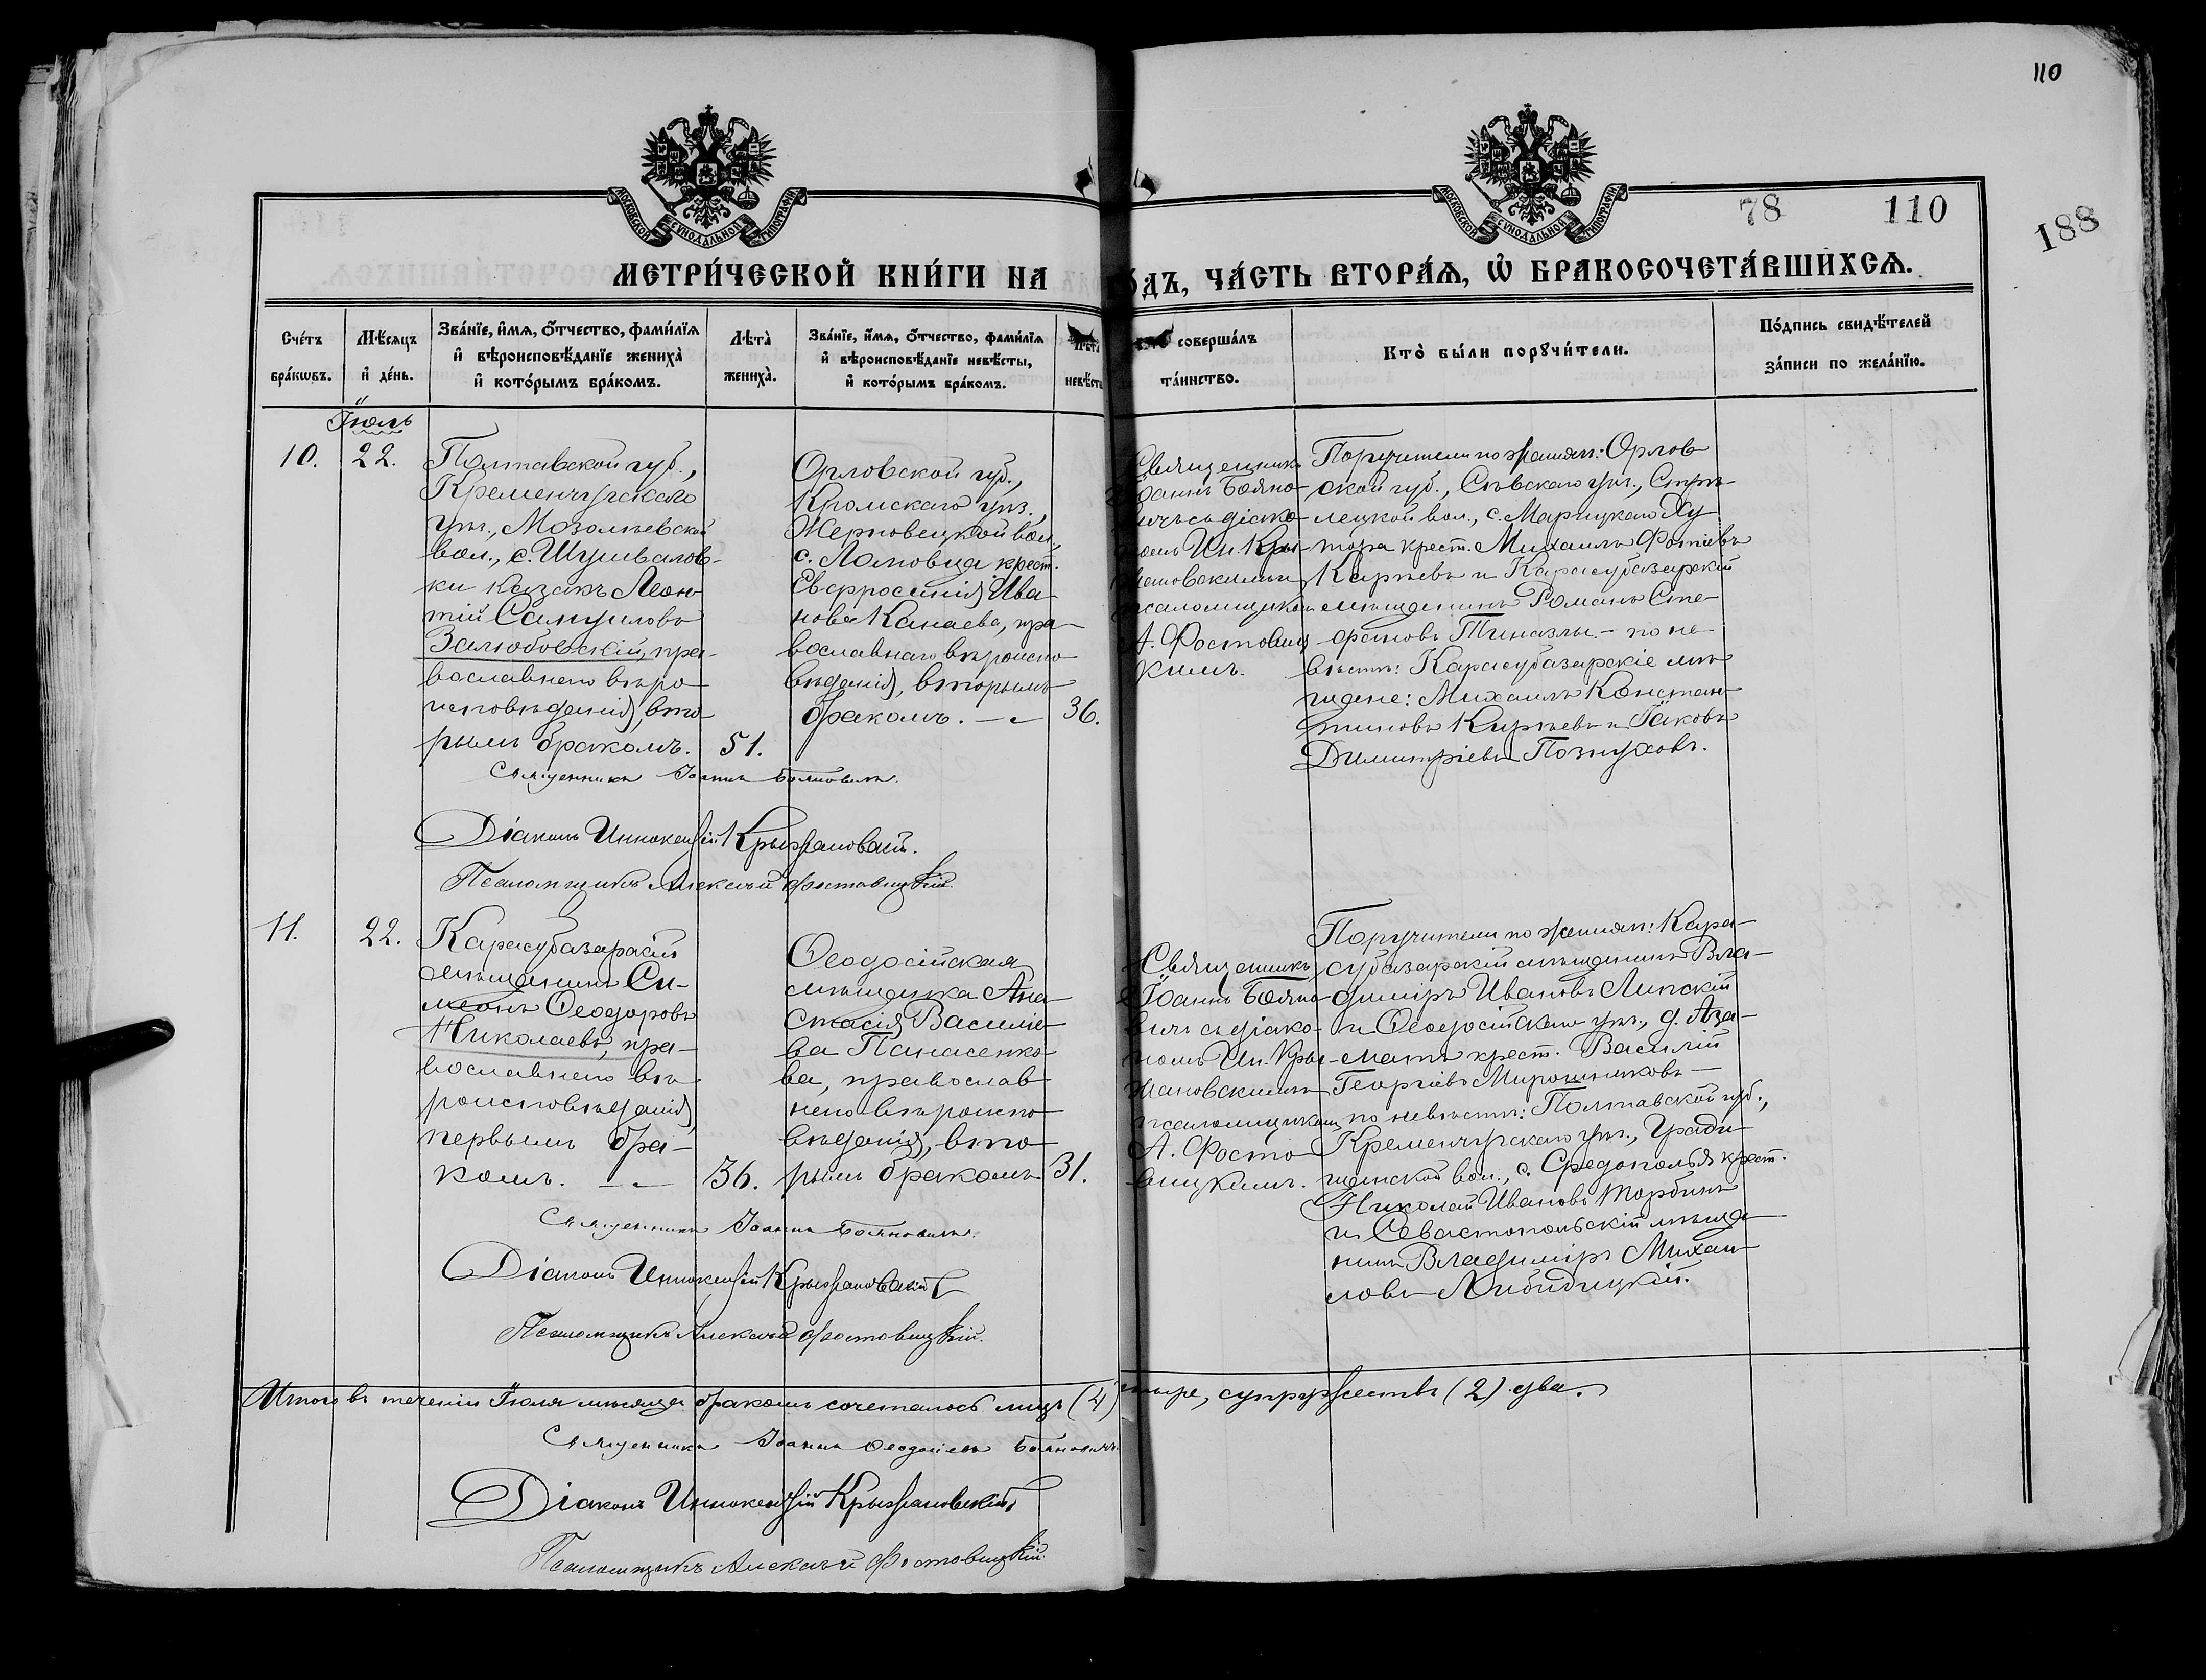 110
МОСКОВСКОЙ СѴНОДАЛЬНОЙ ТИПОГРАФІИ
МОСКОВСКОЙ СѴНОДАЛЬНОЙ ТИПОГРАФІИ
78 110
188
МЕТРИ́ЧЕСКОЙ КНИ́ГИ НА
ДЪ, ЧА́СТЬ ВТОРА́Ѧ, Ѽ БРАКОСОЧЕТА́ВШИХСѦ.
Сче́тъ бра́кωвъ.
Мѣ́сяцъ и҆ де́нь.
Зва́нїе, и҆́мѧ, ѻ҆́тчество, фами́лїѧ
и҆ вѣроисповѣ́данїе жениха̀
и҆ кото́рымъ бра́комъ.
Лѣта̀ жениха̀.
Зва́нїе, и҆́мѧ, ѻ҆́тчество, фами́лїѧ
и҆ вѣроисповѣ́данїе невѣ́сты,
и҆ кото́рымъ бра́комъ.
Лѣта̀ невѣ́сты
соверша́лъ
та́инство.
Кто̀ бы́ли порꙋчи́тели.
По́дпись свидѣ́телей
за́писи по жела́нїю.
Іюль
10.
22.
Полтавской губ.,
Кременчугскаго
уѣз., Мозолѣевской
вол., с. Шушвалов-
ки казакъ Леон-
тій Самуиловъ
Залюбовскій, пра-
вославнаго вѣро-
исповѣданія, вто-
рымъ бракомъ.
51.
Орловской губ.,
Кромскаго уѣз.,
Жерновецкой вол.,
с. Ломовца крест.
Евфросинія Ива-
нова Канаева, пра-
вославнаго вѣроиспо-
вѣданія, вторымъ
бракомъ. —
36.
Священникъ
Іоаннъ Бояно-
вичъ съ діако-
номъ Ин. Кры-
жановскимъ и
псаломщикомъ
А. Фостовиц-
кимъ.
Поручители по женихѣ: Орлов-
ской губ., Сѣвскаго уѣз., Стрѣ-
лецкой вол., с. Марицкаго Ху-
тора крест. Михаилъ Фотіевъ
Карпѣевъ и Карасубазарскій
мѣщанинъ Романъ Сте-
фановъ Тиназлы. — по не-
вѣстѣ: Карасубазарскіе мѣ-
щане: Михаилъ Констан-
тиновъ Кирѣевъ и Іаковъ
Димитріевъ Познуховъ.
Священникъ Іоаннъ Бояновичъ.
Діаконъ Иннокентій Крыжановскій.
Псаломщикъ Алексѣй Фостовицкій.
11.
22.
Карасубазарскій
мѣщанинъ Си-
меонъ Ѳеодоровъ
Николаевъ, пра-
вославнаго вѣ-
роисповѣданія,
первымъ бра-
комъ. —
36.
Ѳеодосійская
мѣщанка Ана-
стасія Василіе-
ва Панасенко-
ва, православ-
наго вѣроиспо-
вѣданія, вто-
рымъ бракомъ
31.
Священникъ
Іоаннъ Бояно-
вичъ съ діако-
номъ Ин. Кры-
жановскимъ
псаломщикомъ
А. Фосто-
вицкимъ.
Поручители по женихѣ: Кара-
субазарскій мѣщанинъ Вла-
диміръ Ивановъ Липскій
и Ѳеодосійскаго уѣз., д. Аза-
матъ крест. Василій
Георгіевъ Мирошниковъ —
по невѣстѣ: Полтавской губ.,
Кременчугскаго уѣз., Гради-
жской вол., с. Средополья крест.
Николай Ивановъ Торбинъ
и Севастопольскій мѣща-
нинъ Владиміръ Михаи-
ловъ Либидицкій.
Священникъ Іоаннъ Бояновичъ.
Діаконъ Иннокентій Крыжановскій
Псаломщикъ Алексѣй Фостовицкій.
Итого въ теченіи Іюля мѣсяца бракомъ сочеталось лицъ (4) тыре, супружествъ (2) два.
Священникъ Іоаннъ Бояновичъ.
Діаконъ Иннокентій Крыжановскій
Псаломщикъ Алексѣй Фостовицкій.